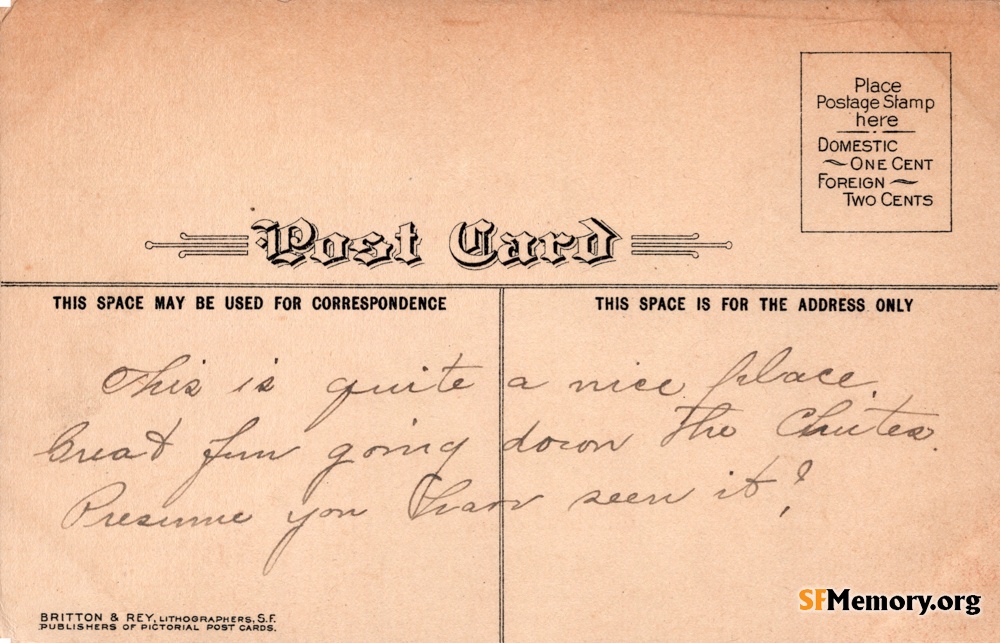 Place
Postage Stamp
here
DOMESTIC
~ ONE CENT
FOREIGN ~
TWO CENTS
Post Card
THIS SPACE MAY BE USED FOR CORRESPONDENCE
THIS SPACE IS FOR THE ADDRESS ONLY
This is quite a nice place.
Great fun going down the Chutes
Presume you have seen it?
BRITTON & REY, LITHOGRAPHERS, S.F.
PUBLISHERS OF PICTORIAL POST CARDS.
SFMemory.org